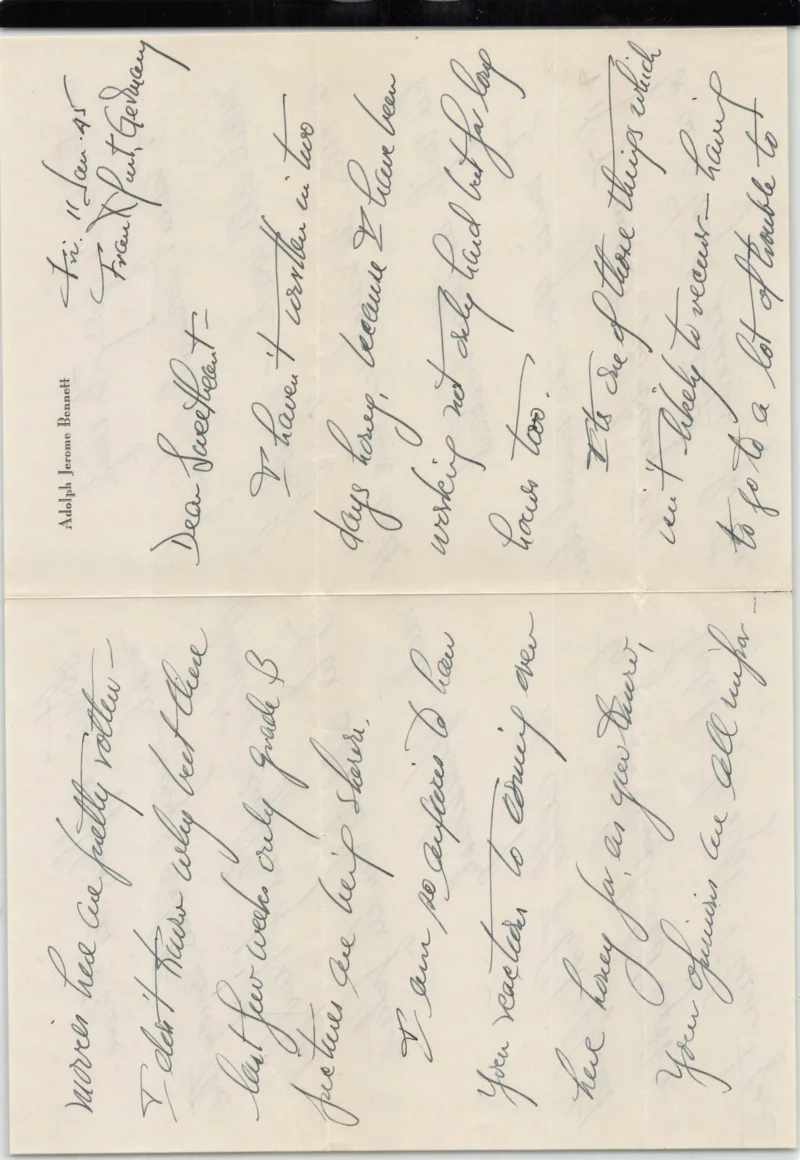 Adolph Jerome Bennett
Fri. 11 Jan. 45
Frankfurt, Germany
Dear Sweetheart —
I haven't written in two
days honey, because I have been
working not only hard but for long
hours too.
It's one of those things which
isn't likely to recur — having
to go to a lot of trouble to
movies here are pretty rotten —
I don't know why but these
last few weeks only grade B
pictures are being shown.
I am so anxious to hear
your reactions to coming over
here honey for, as you know,
Your opinions are all impor-